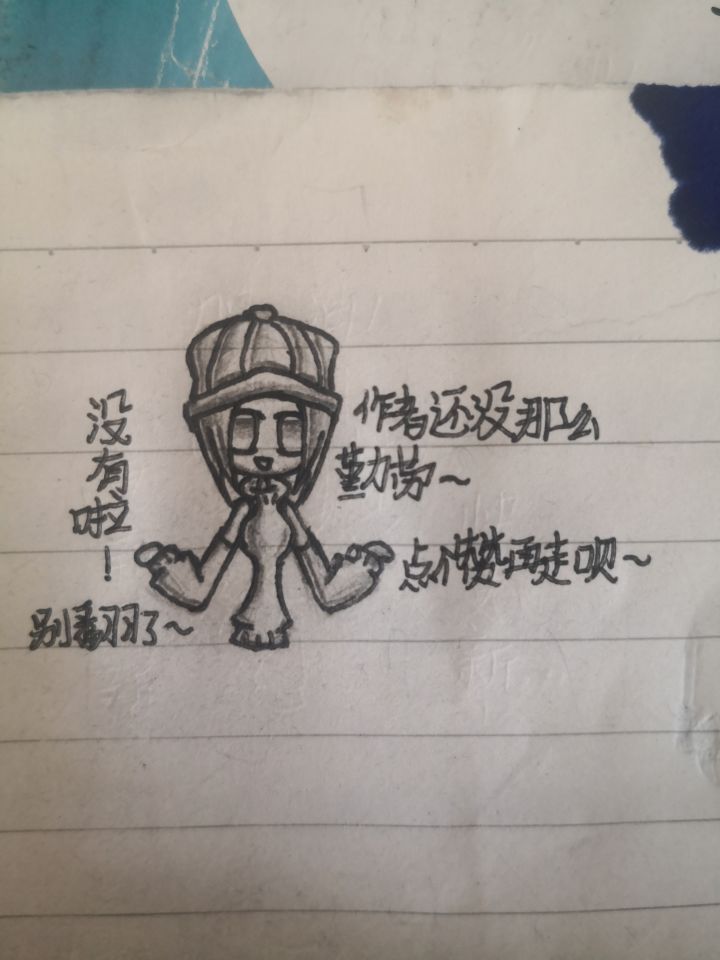 没有啦！
别翻了~
作者还没那么
勤劳~
点个赞再走呗~